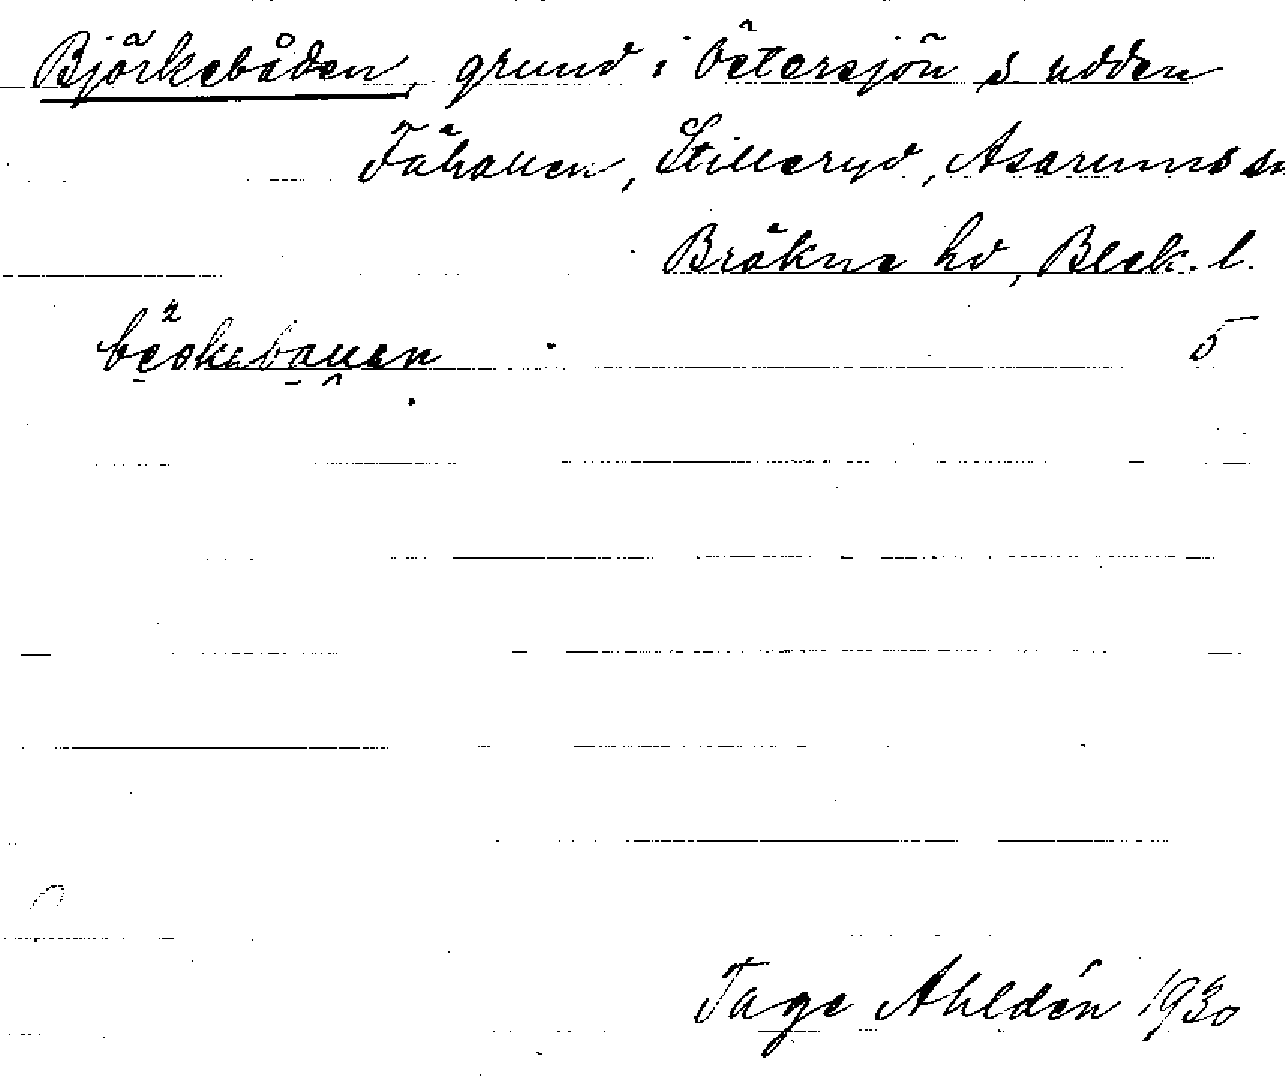 Björkebåden, grund i Östersjön S udden
Fähallen, Stilleryd, Asarums sn
Bräkne hd, Blek. l.
5
Tage Ahldén 1930